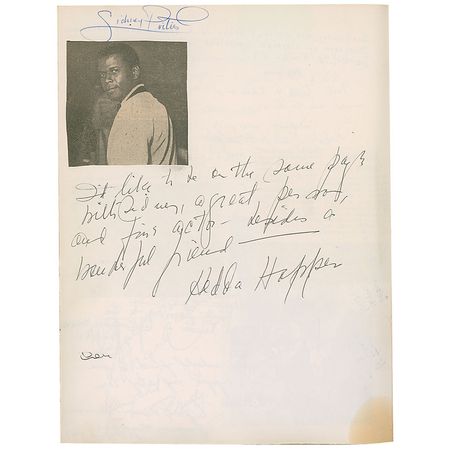 Sidney Poitier
I'd like to be on the same page
with Sidney, a great person,
and fine actor - besides a
wonderful friend
Hedda Hopper